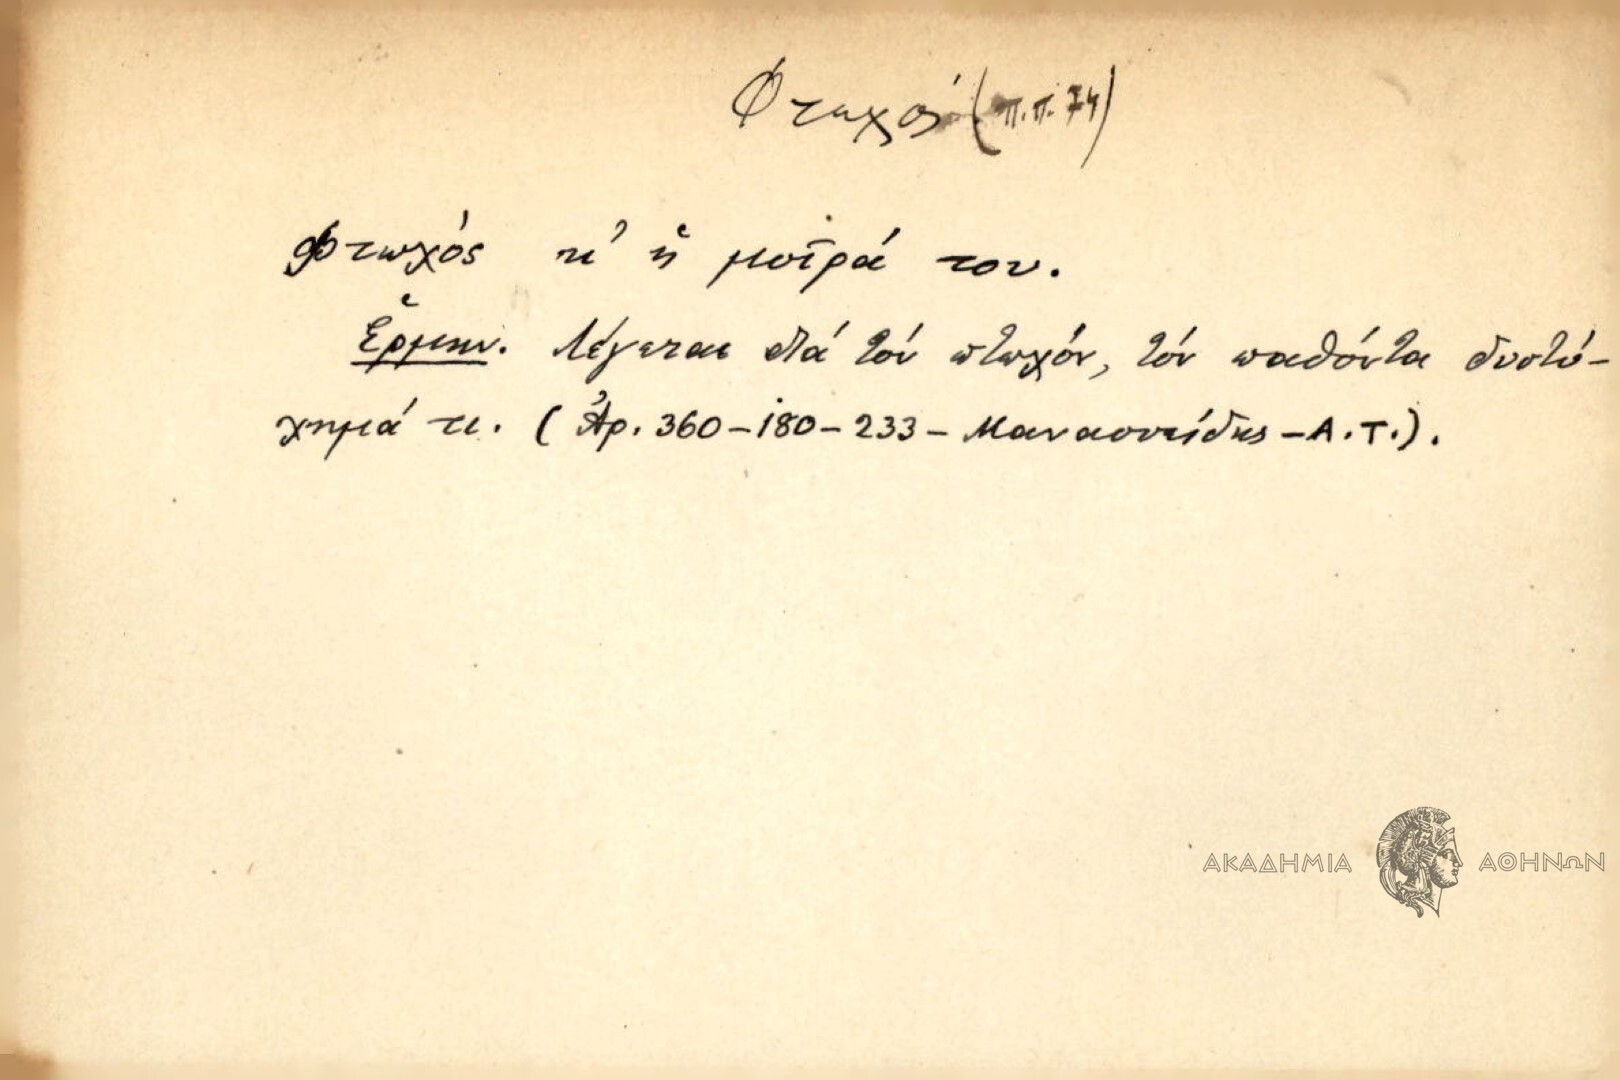 Φτωχός (π.π. 74)
Φτωχός κι' ἡ μοῖρά του.
Ἑρμην. Λέγεται διά τόν πτωχόν, τόν παθόντα δυστύ-
χημά τι. (Ἀρ. 360-180-233-Μανασσείδης-Α.Τ.).
ΑΚΑΔΗΜΙΑ ΑΘΗΝΩΝ